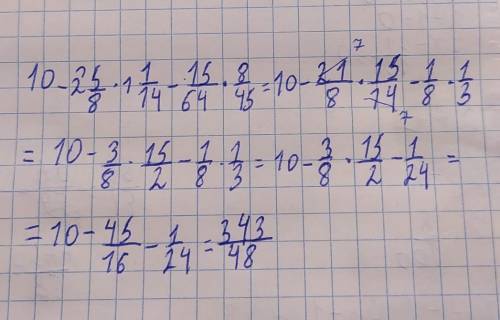 10 - 2 5/8 · 1 1/14 - 15/64 · 8/45 = 10 - 21/8 · 15/14 - 1/8 · 1/3
= 10 - 3/8 · 15/2 - 1/8 · 1/3 = 10 - 3/8 · 15/2 - 1/24 =
= 10 - 45/16 - 1/24 = 343/48